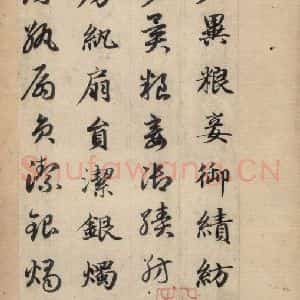 異粮妾御績紡
異粮妾御績紡
紈扇員潔銀燭
紈扇員潔銀燭
Shufawang.CN